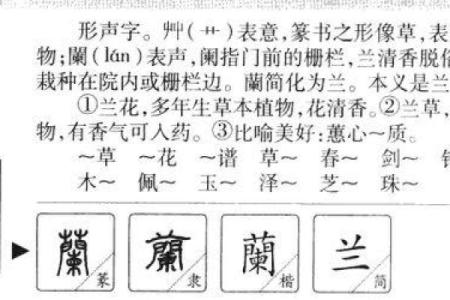 形声字。艸(艹)表意,篆书之形像草,表
物;闌(lán)表声,阑指门前的栅栏,兰清香脱俗
栽种在院内或栅栏边。蘭简化为兰。本义是兰
①兰花,多年生草本植物,花清香。②兰草,
物,有香气可入药。③比喻美好:蕙心～质。
～草 ～花 ～谱 草～ 春～ 剑～
木～ 佩～ 玉～ 泽～ 芝～ 珠～
蘭 篆 蘭 隶 蘭 楷 兰 简